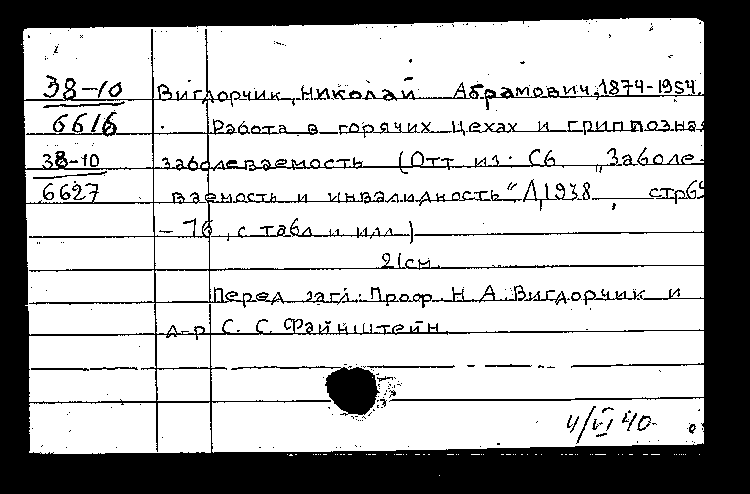 38-10 Вигдорчик, Николай Абрамович, 1874-1954.
6616 Работа в горячих цехах и гриппозная
38-10 заболеваемость (Отт из: Сб. „Заболе-
6627 ваемость и инвалидность", Л, 1938, стр 69
- 76, с табл и илл)
21см.
Перед загл: Проф. Н. А. Вигдорчик и
д-р С. С. Файнштейн.
4/VI 40